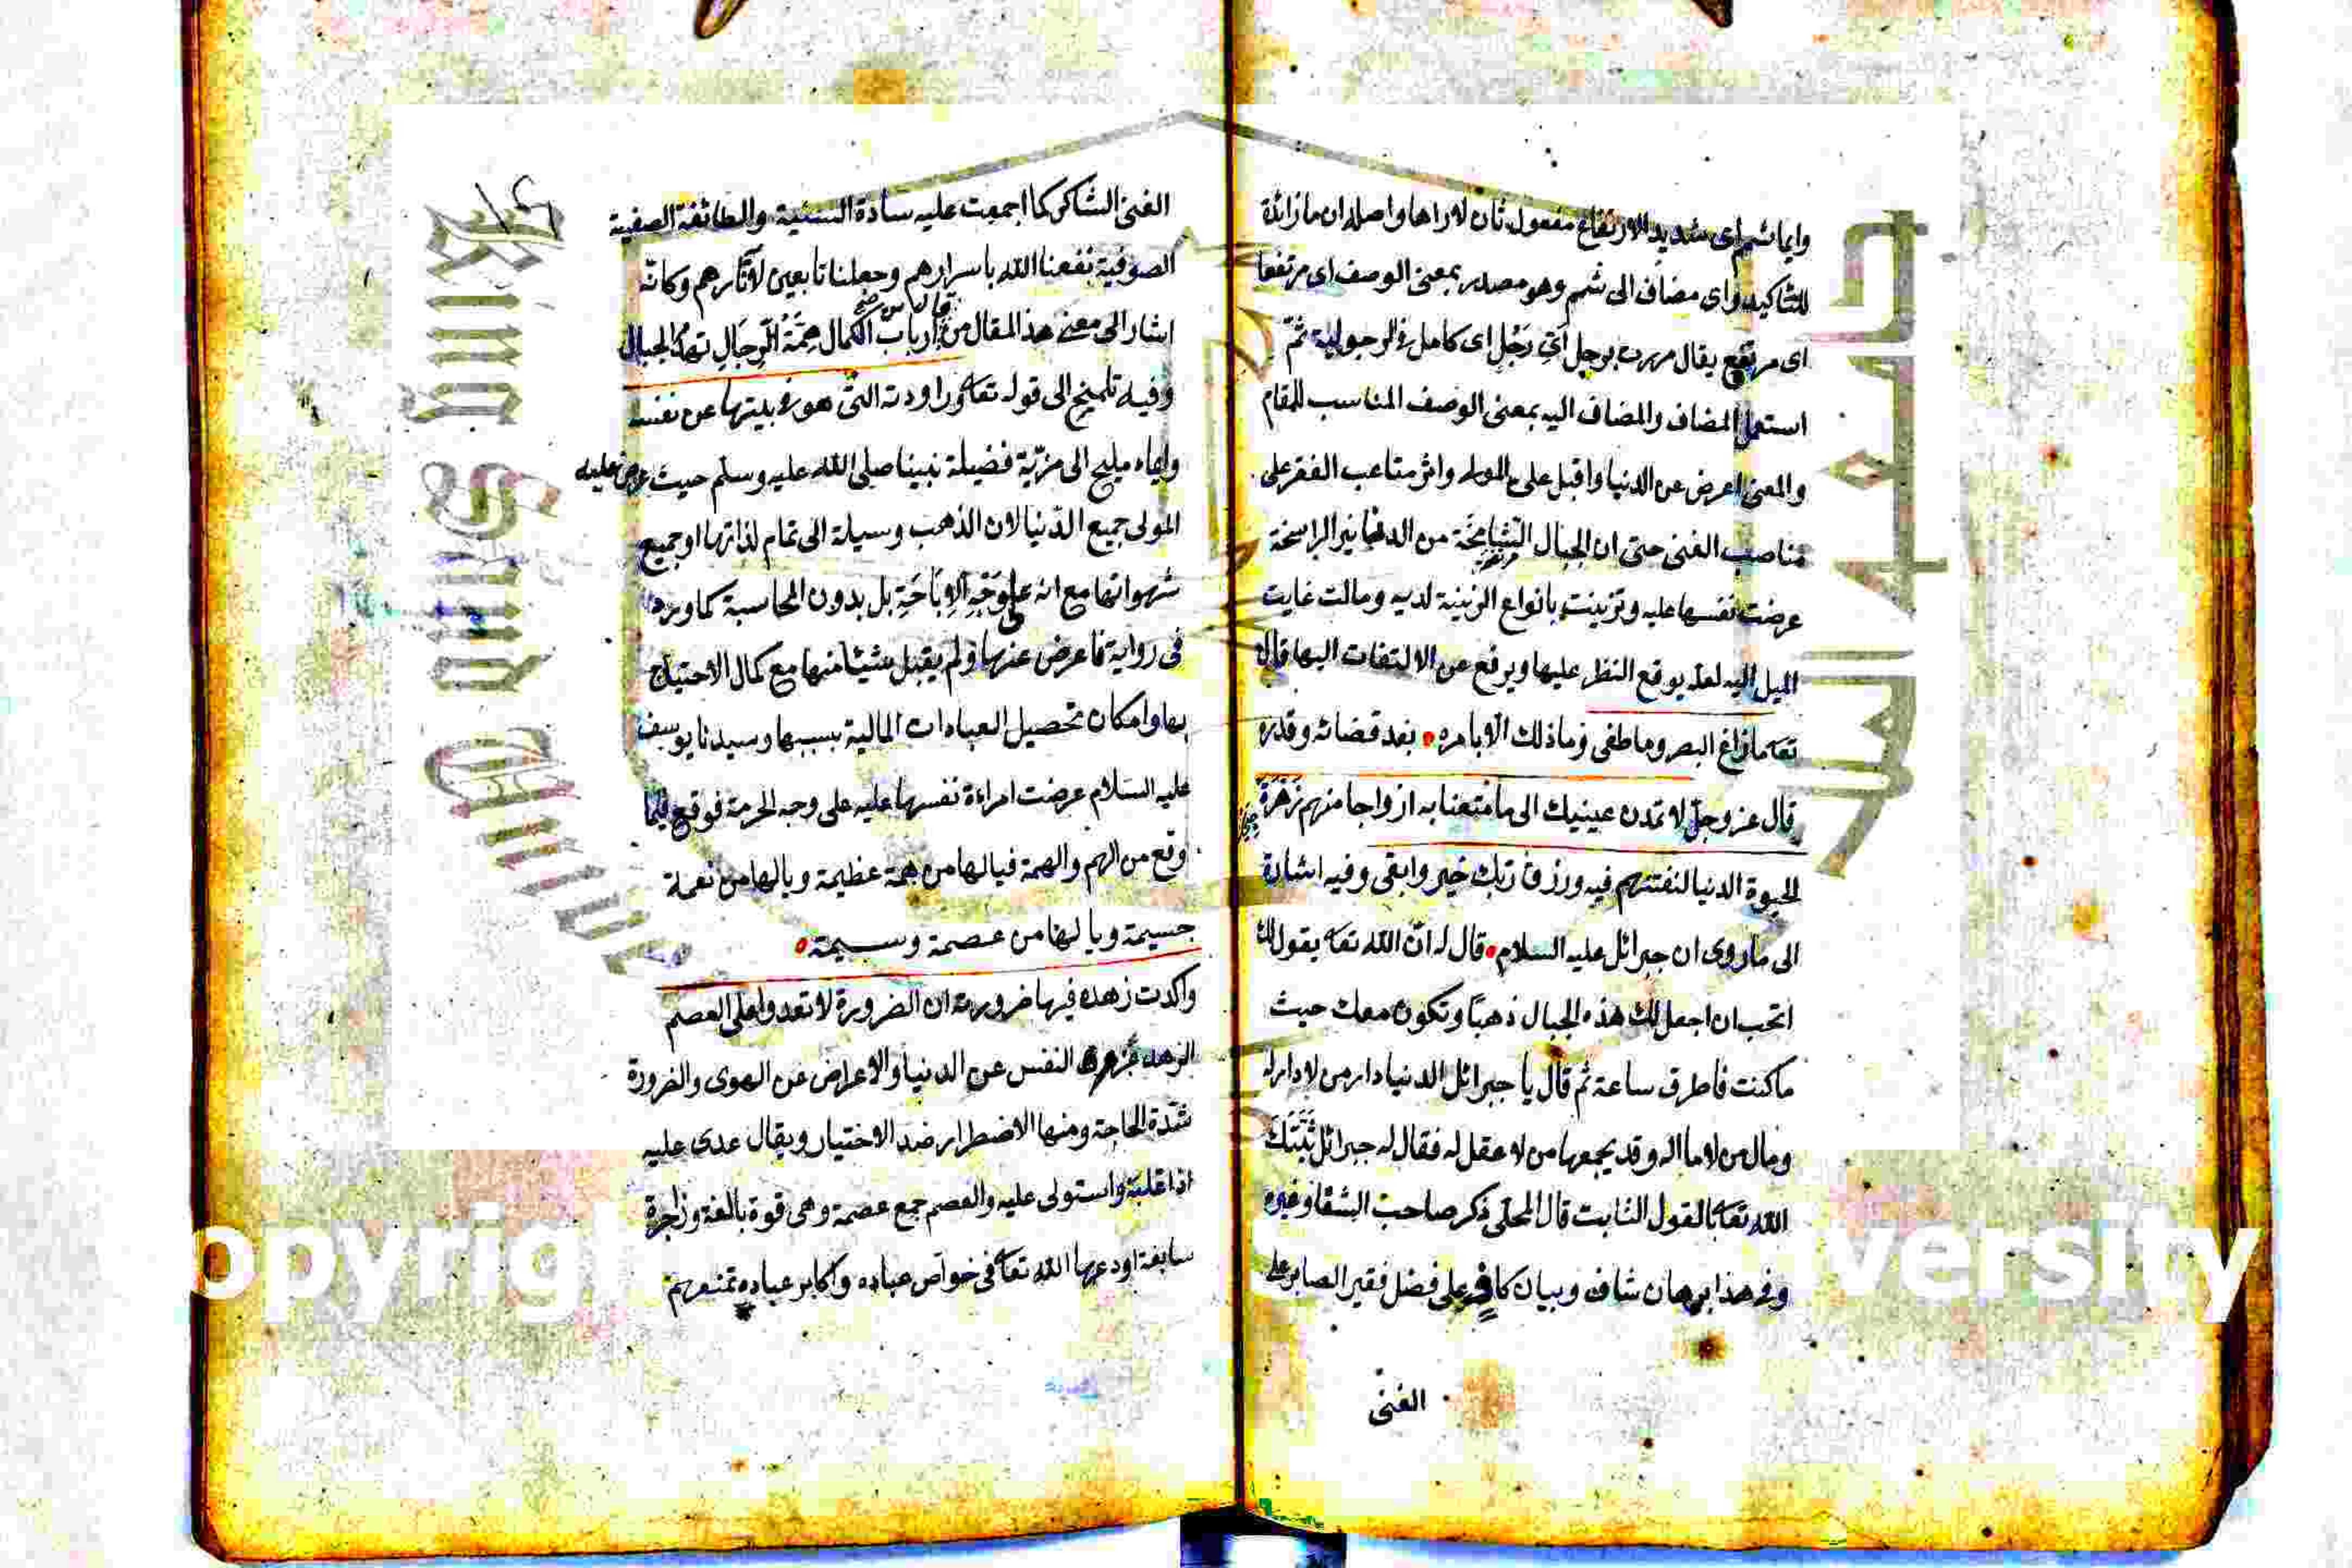 وايما شمم اى شديد الارتفاع مفعول ثان لاراها واصله ان ما زائدة
للتاكيد واى مضاف الى شمم وهو مصدر بمعنى الوصف اى مرتفعا
اى مرتفع يقال مررت برجل اَيِّ رَجُلٍ اى كامل فى الرجولية ثمّ
استعمل المضاف والمضاف اليه بمعنى الوصف المناسب للمقام
والمعنى اعرض عن الدنيا واقبل على المولى واثر متاعب الفقر على
مناصب الغنى حتى ان الجبال الشامخة من الدنانير الراسخة
عرضت نفسها عليه وتزينت بانواع الزينة لديه ومالت غايت
الميل اليه لعله يوقع النظر عليها ويرفع عن الالتفات اليها قال
تعا ما زاغ البصر وما طغى وما ذلك الا بامره بعد قضائه وقدره
قال عز وجلّ لا تمدن عينيك الى ما متعنا به ازواجا منهم زَهْرَةَ
الحيوة الدنيا لنفتنهم فيه ورزق ربك خير وابقى وفيه اشارة
الى ما روى ان جبرائل عليه السلام قال له انّ الله تعا يقول لك
اتحب ان اجعل لك هذه الجبال ذهبًا وتكون معك حيث
ما كنت فاطرق ساعة ثم قال يا جبرائل الدنيا دار من لا دار له
ومال من لا مال له وقد يجمعها من لا عقل له فقال له جبرائل ثَبَّتَكَ
الله تعا بالقول الثابت قال المحلى ذكر صاحب الشفا وغيره
وفى هذا برهان شاف وبيان كاف على فضل فقير الصابر على
الغنى
الغنى الشاكر كما اجمعت عليه سادة السنية والطائفة الصفية
الصوفية نفعنا الله باسرارهم وجعلنا تابعين لاثارهم وكانه
اشار الى معنى هذا المقال من قال من ارباب الكمال هِمَّةُ الرِّجَالِ تهدُّ الجبال
وفيه تلميح الى قوله تعا وراودته التى هو فى بيتها عن نفسه
وايماء مليح الى مزيّة فضيلة نبينا صلى الله عليه وسلم حيث عرض عليه
المولى جميع الدّنيا لان الذهب وسيلة الى تمام لذاتها او جميع
شهواتها مع انه على وَجْهِ الاِبَاحَةِ بل بدون المحاسبة كما ورد
فى رواية فاعرض عنها ولم يقبل شيئا منها مع كمال الاحتياج
بها وامكان تحصيل العبادات المالية بسببها وسيدنا يوسف
عليه السّلام عرضت امراءة نفسها عليه على وجه الحرمة فوقع فيما
وقع من الهم والهمة فيا لها من همة عظيمة ويا لها من نعمة
جسيمة ويا لها من عصمة وسيمة
واكدت زهده فيها ضرورته ان الضرورة لا تعدوا على العصم
الزهد النفس عن الدنيا والاعراض عن الهوى والضرورة
شدّة الحاجة ومنها الاضطرار ضد الاختيار ويقال عدى عليه
اذا غلبه واستولى عليه والعصم جمع عصمة وهى قوة بالغة وزاجرة
سابغة اودعها الله تعا فى خواص عباده واكابر عباده تمنعهم